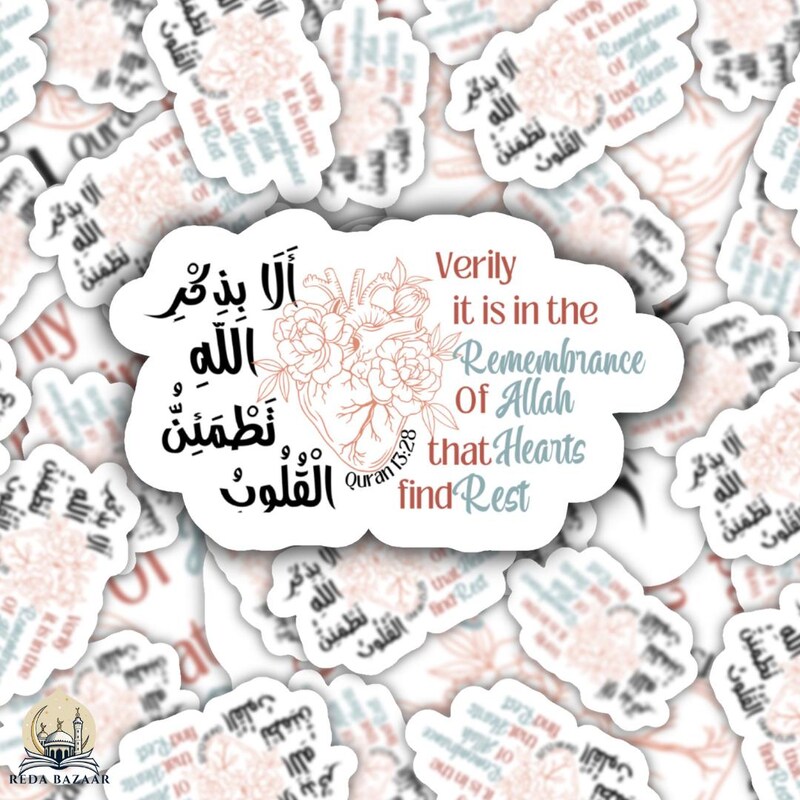 أَلَا بِذِكْرِ
اللَّهِ
تَطْمَئِنُّ
الْقُلُوبُ
Quran 13:28
Verily
it is in the
Remembrance
Of Allah
that Hearts
find Rest
REDA BAZAAR